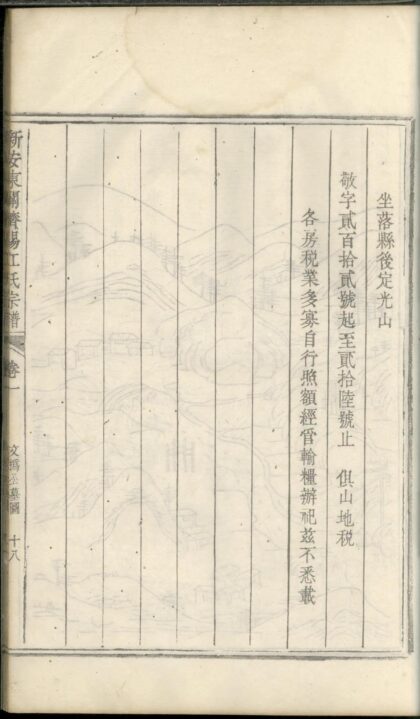 坐落縣後定光山
敬字貳百拾貳號起至貳拾陸號止　俱山地税
各房税業多寡自行照額經管輸糧辦祀茲不悉載
新安東關濟陽江氏宗譜
卷一
公墓圖
十八